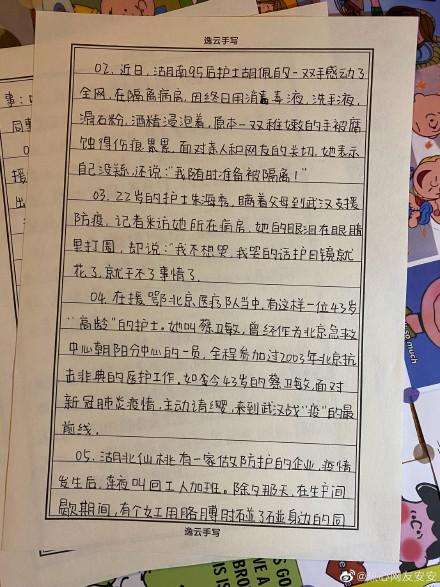 逸云手写
02. 近日，湖南95后护士胡佩的一双手感动了
全网，在隔离病房，因终日用消毒液，洗手液，
滑石粉，酒精浸泡着，原本一双稚嫩的手被腐
蚀得伤痕累累。面对亲人和网友的关切，她表示
自己没丝，还说："我随时准备被隔离！"
03. 22岁的护士朱海秀，瞒着父母到武汉支援
防疫，记者采访她所在病房，她的眼泪在眼眶
里打圈，却说："我不想哭，我哭的话护目镜就
花了，就干不了事情了。
04. 在援鄂北京医疗队当中，有这样一位43岁
"高龄"的护士。她叫蔡卫敏，曾经作为北京急救
中心朝阳分中心的一员，全程参加过2003年北京抗
击非典的医护工作，如今43岁的蔡卫敏，面对
新冠肺炎疫情，主动请缨，来到武汉战"疫"的最
前线。
05. 湖北仙桃有一家做防护的企业，疫情
发生后，连夜叫回工人加班。除夕那天，在生产间
歇期间，有个女工用胳膊时不时碰身边的同
逸云手写
事：
同事
援
出
so much